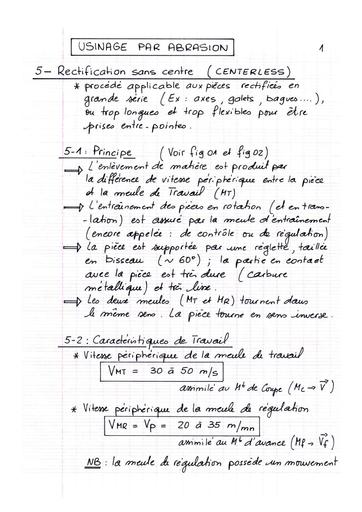 USINAGE PAR ABRASION 1
5- Rectification sans centre (CENTERLESS)
* procédé applicable aux pièces rectifiées en
grande série (Ex : axes, galets, bagues....),
ou trop longues et trop flexibles pour être
prises entre-pointes.
5-1: Principe (Voir fig 01 et fig 02)
⇒ L'enlèvement de matière est produit par
la différence de vitesse périphérique entre la pièce
et la meule de Travail (MT)
⇒ L'entraînement des pièces en rotation (et en trans-
-lation) est assuré par la meule d'entraînement
(encore appelée : de contrôle ou de régulation)
⇒ La pièce est supportée par une réglette, taillée
en biseau (~ 60°) ; la partie en contact
avec la pièce est très dure (carbure
métallique) et très lisse.
⇒ Les deux meules (MT et MR) tournent dans
le même sens. La pièce tourne en sens inverse.
5-2 : Caractéristiques de Travail
* Vitesse périphérique de la meule de travail
VMT = 30 à 50 m/s
assimilé au Mt de Coupe (Mc → V)
* Vitesse périphérique de la meule de régulation
VMR = Vp = 20 à 35 m/mn
assimilé au Mt d'avance (Mf → Vf)
NB : la meule de régulation possède un mouvement